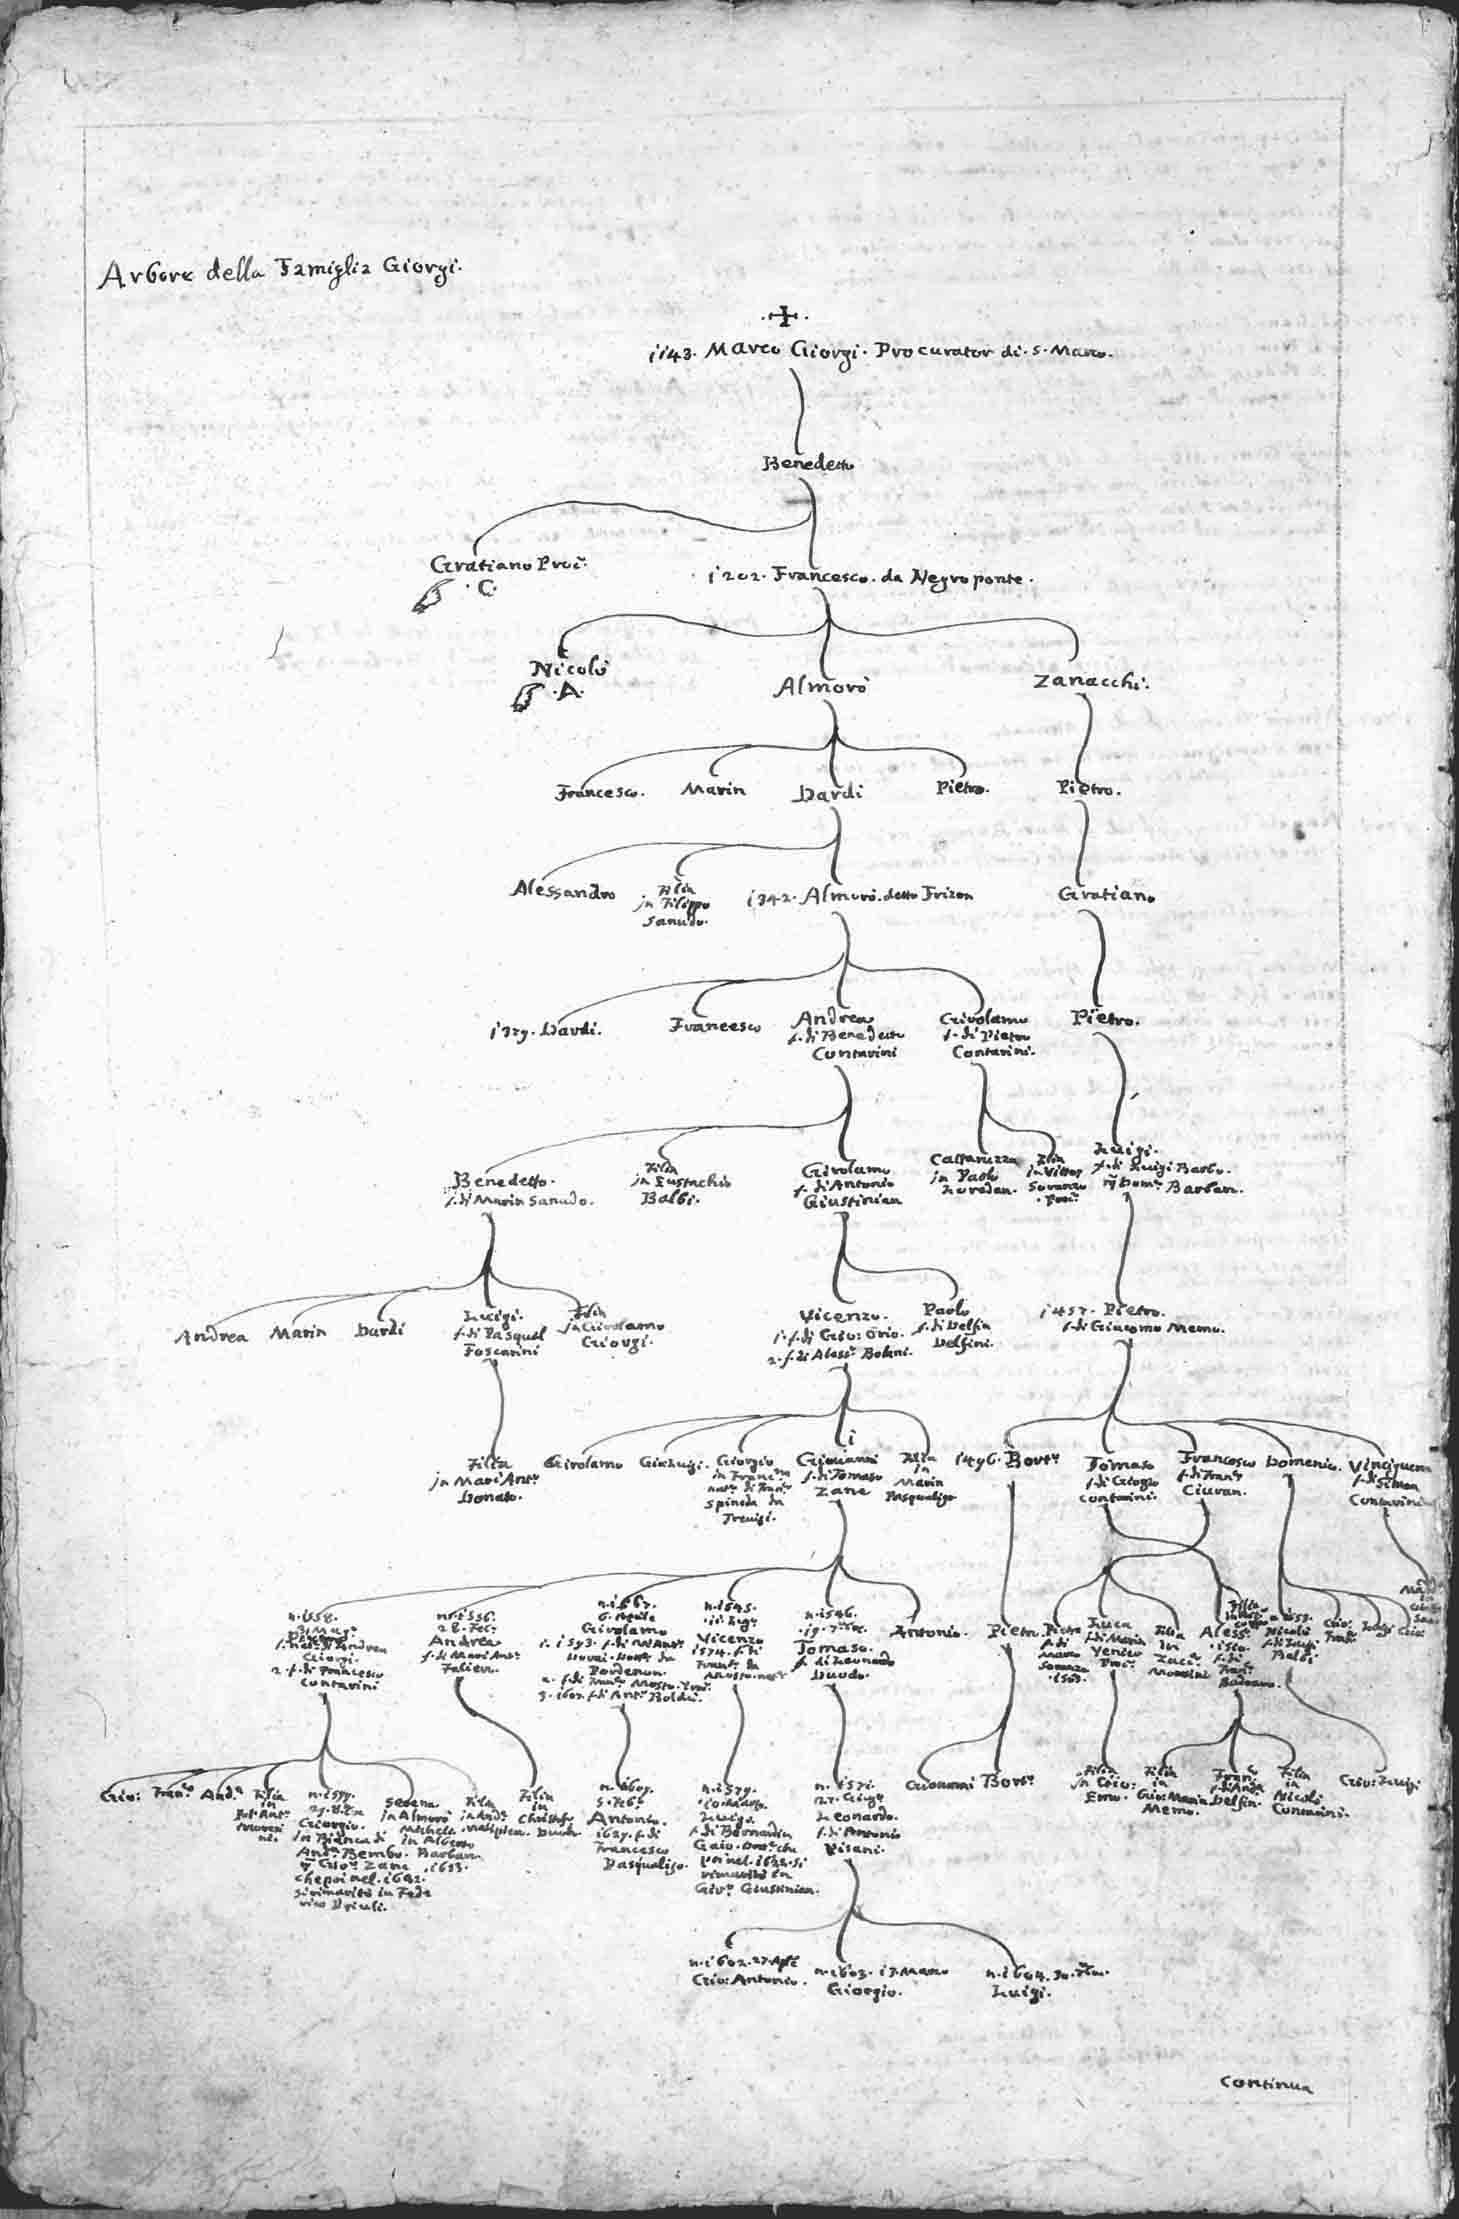 Arbore della Famiglia Giorgi.
1143. Marco Giorgi. Procurator di. S. Marco.
Benedetto
Gratiano Proc.r
.C.
1202. Francesco. da Negroponte.
Nicolò
.A.
Almorò
Zanacchi.
Francesco.
Marin
Dardi
Pietro.
Pietro.
Alessandro
Filia
in Filippo
Sanudo.
1342. Almorò. detto Frizon
Gratiano
1379. Dardi.
Francesco
Andrea
f. di Benedetto
Contarini
Girolamo
f. di Pietro
Contarini.
Pietro.
Benedetto.
f. di Marin Sanudo.
Filia
in Eustachio
Balbi.
Girolamo
f. di Antonio
Giustinian
Cattaruzza
in Paolo
Loredan.
Filia
in Vittor
Soranzo
Proc.r
Luigi.
f. di Luigi Barbo.
Barban.
Andrea
Marin
Dardi
Luigi.
f. di Pasqual
Foscarini
Filia
in Girolamo
Giorgi.
Vicenzo.
1. f. di Gio: Orio.
2. f. di Aless.o Bolani.
Paolo
f. di Delfin
Delfini.
1457. Pietro.
f. di Giacomo Memo.
Filia
in Marc'Ant.o
Donato.
Girolamo
Gio:Luigi.
Giorgio
in
Spineda da
Trevigi.
Giovanni
f. di Tomaso
Zane
Filia
in
Marin
Pasqualigo
1496. Bort.o
Tomaso
f. di Giorgio
Contarini.
Francesco
f. di Fran.co
Civran.
Domenico.
Vinciguerra
f. di Simon
Contarini
n. 1558.
f. nat. d'Andrea
Giorgi.
2. f. di Francesco
Contarini
n. 1556.
28. Feb.o
Andrea
f. di Marc'Ant.o
Falier.
n. 1567.
6. Aprile
Girolamo
1. 1593. f. di M.Ant.o
da
Pordenon.
3. 1602. f. di Ant.o Boldù.
n. 1545.
Vicenzo
1574. f. di
n. 1546.
Tomaso.
f. di Leonardo
Duodo.
Antonio.
Pietro
Pietro
f. di
Marco
Soranzo
Luca
f. di Marin
Venier
Proc.r
Filia
in
Zacc.a
Morosini
Aless.o
f. di
Fran.o
Badoaro.
Nicolò
f. di Luigi
Balbi
Gio:
Fran.co
And.a
Filia
in
n. 1577.
Giorgio.
in Bianca di
And.a Bembo.
Gio: Zane
che poi nel. 1642.
si rimaritò in Fede
rico
Serena
in Almorò
Michele
in Alberto
Barban.
1613.
Filia
in And.a
Malipiero.
Filia
in
Christofo
Duodo
n. 1605.
5. Feb.o
Antonio.
1627. f. di
Francesco
Pasqualigo.
n. 1579.
Luigi.
f. di Bernardin
Gaio.
poi nel. 1622. si
rimaritò in
Gir.o Giustinian.
n. 1571.
27. Giug.o
Leonardo.
f. di Antonio
Pisani.
Giovanni
Bort.o
Filia
in Gio:
Emo.
Filia
in
Gio: Maria
Memo.
Fran.co
Delfin.
Filia
in
Nicolò
Contarini.
Gio: Luigi
n. 1602. 27. Apr.e
Gio: Antonio.
n. 1603. 17. Marzo
Giorgio.
n. 1604. 30.
Luigi.
continua